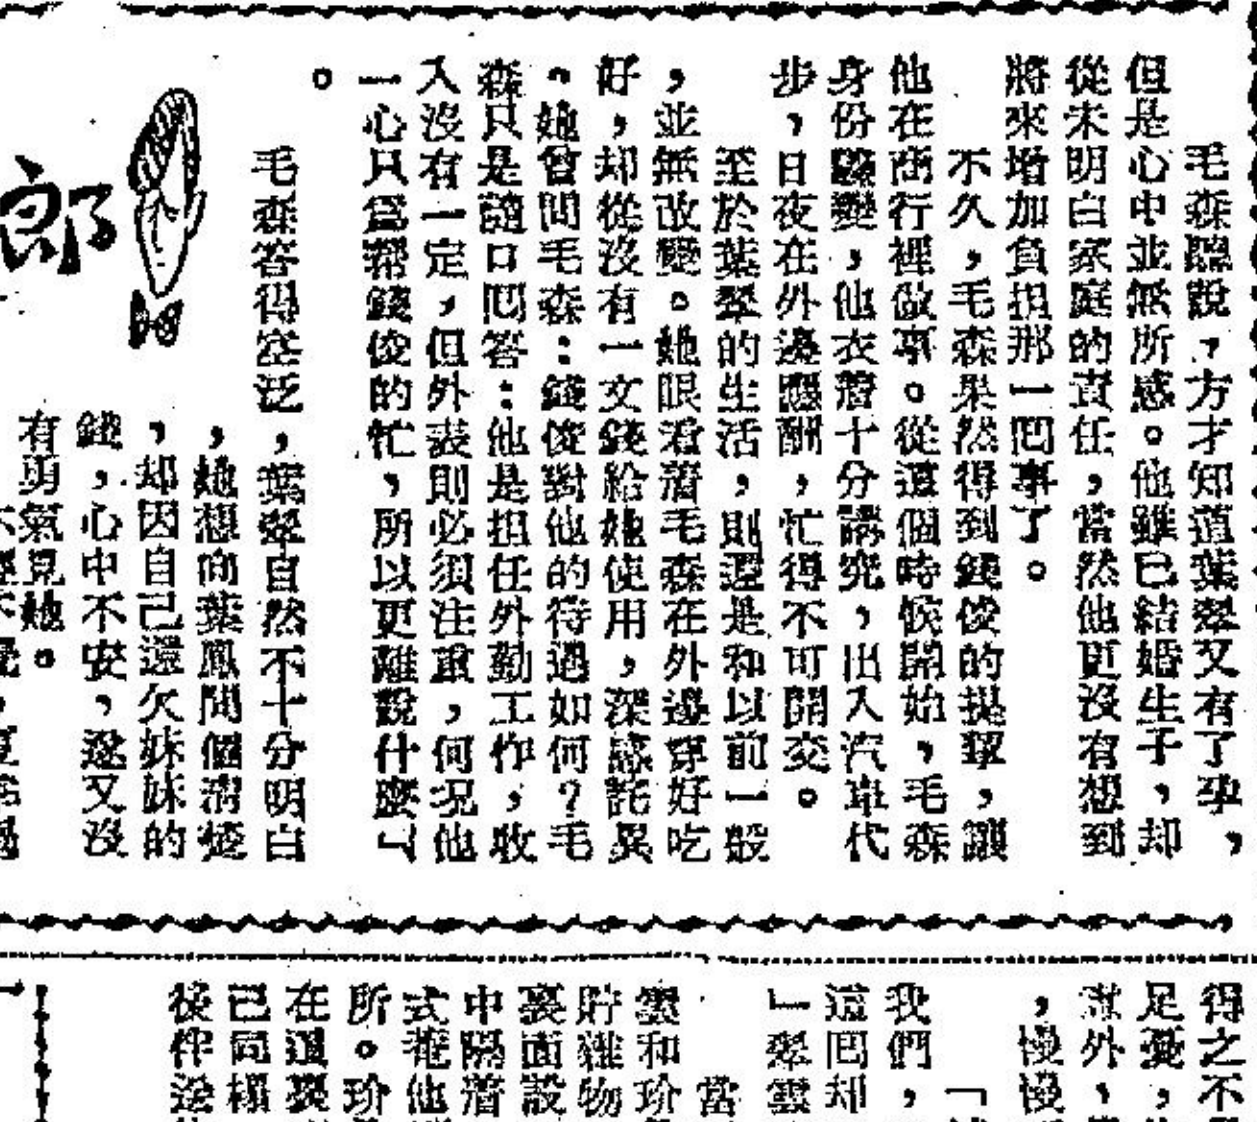 毛森聽說，方才知道葉翠又有了孕，
但是心中並無所感。他雖已結婚生子，却
從未明白家庭的責任，當然他更沒有想到
將來增加負担那一囘事了。
不久，毛森果然得到錢俊的提拔，讓
他在商行裡做事。從這個時候開始，毛森
身份驟變，他衣着十分講究，出入汽車代
步，日夜在外邊應酬，忙得不可開交。
至於葉翠的生活，則還是和以前一般
，並無改變。她眼看着毛森在外邊穿好吃
好，却從沒有一文錢給她使用，深感詫異
。她曾問毛森：錢俊對他的待遇如何？毛
森只是隨口囘答：他是担任外勤工作，收
入沒有一定，但外表則必須注重，何況他
一心只爲幫錢俊的忙，所以更難說什麼」
。
毛森答得空泛，葉翠自然不十分明白
，她想向葉鳳問個清楚
，却因自己還欠妹妹的
錢，心中不安，遂又沒
有勇氣見她。
郎
得之不
足憂，
外，
，慢慢
我們，
這囘却
」翠雲
當
雲和珍
貯雜物
裏面設
中隔着
式花他
所。珍
在這裏
己同樣
後伴